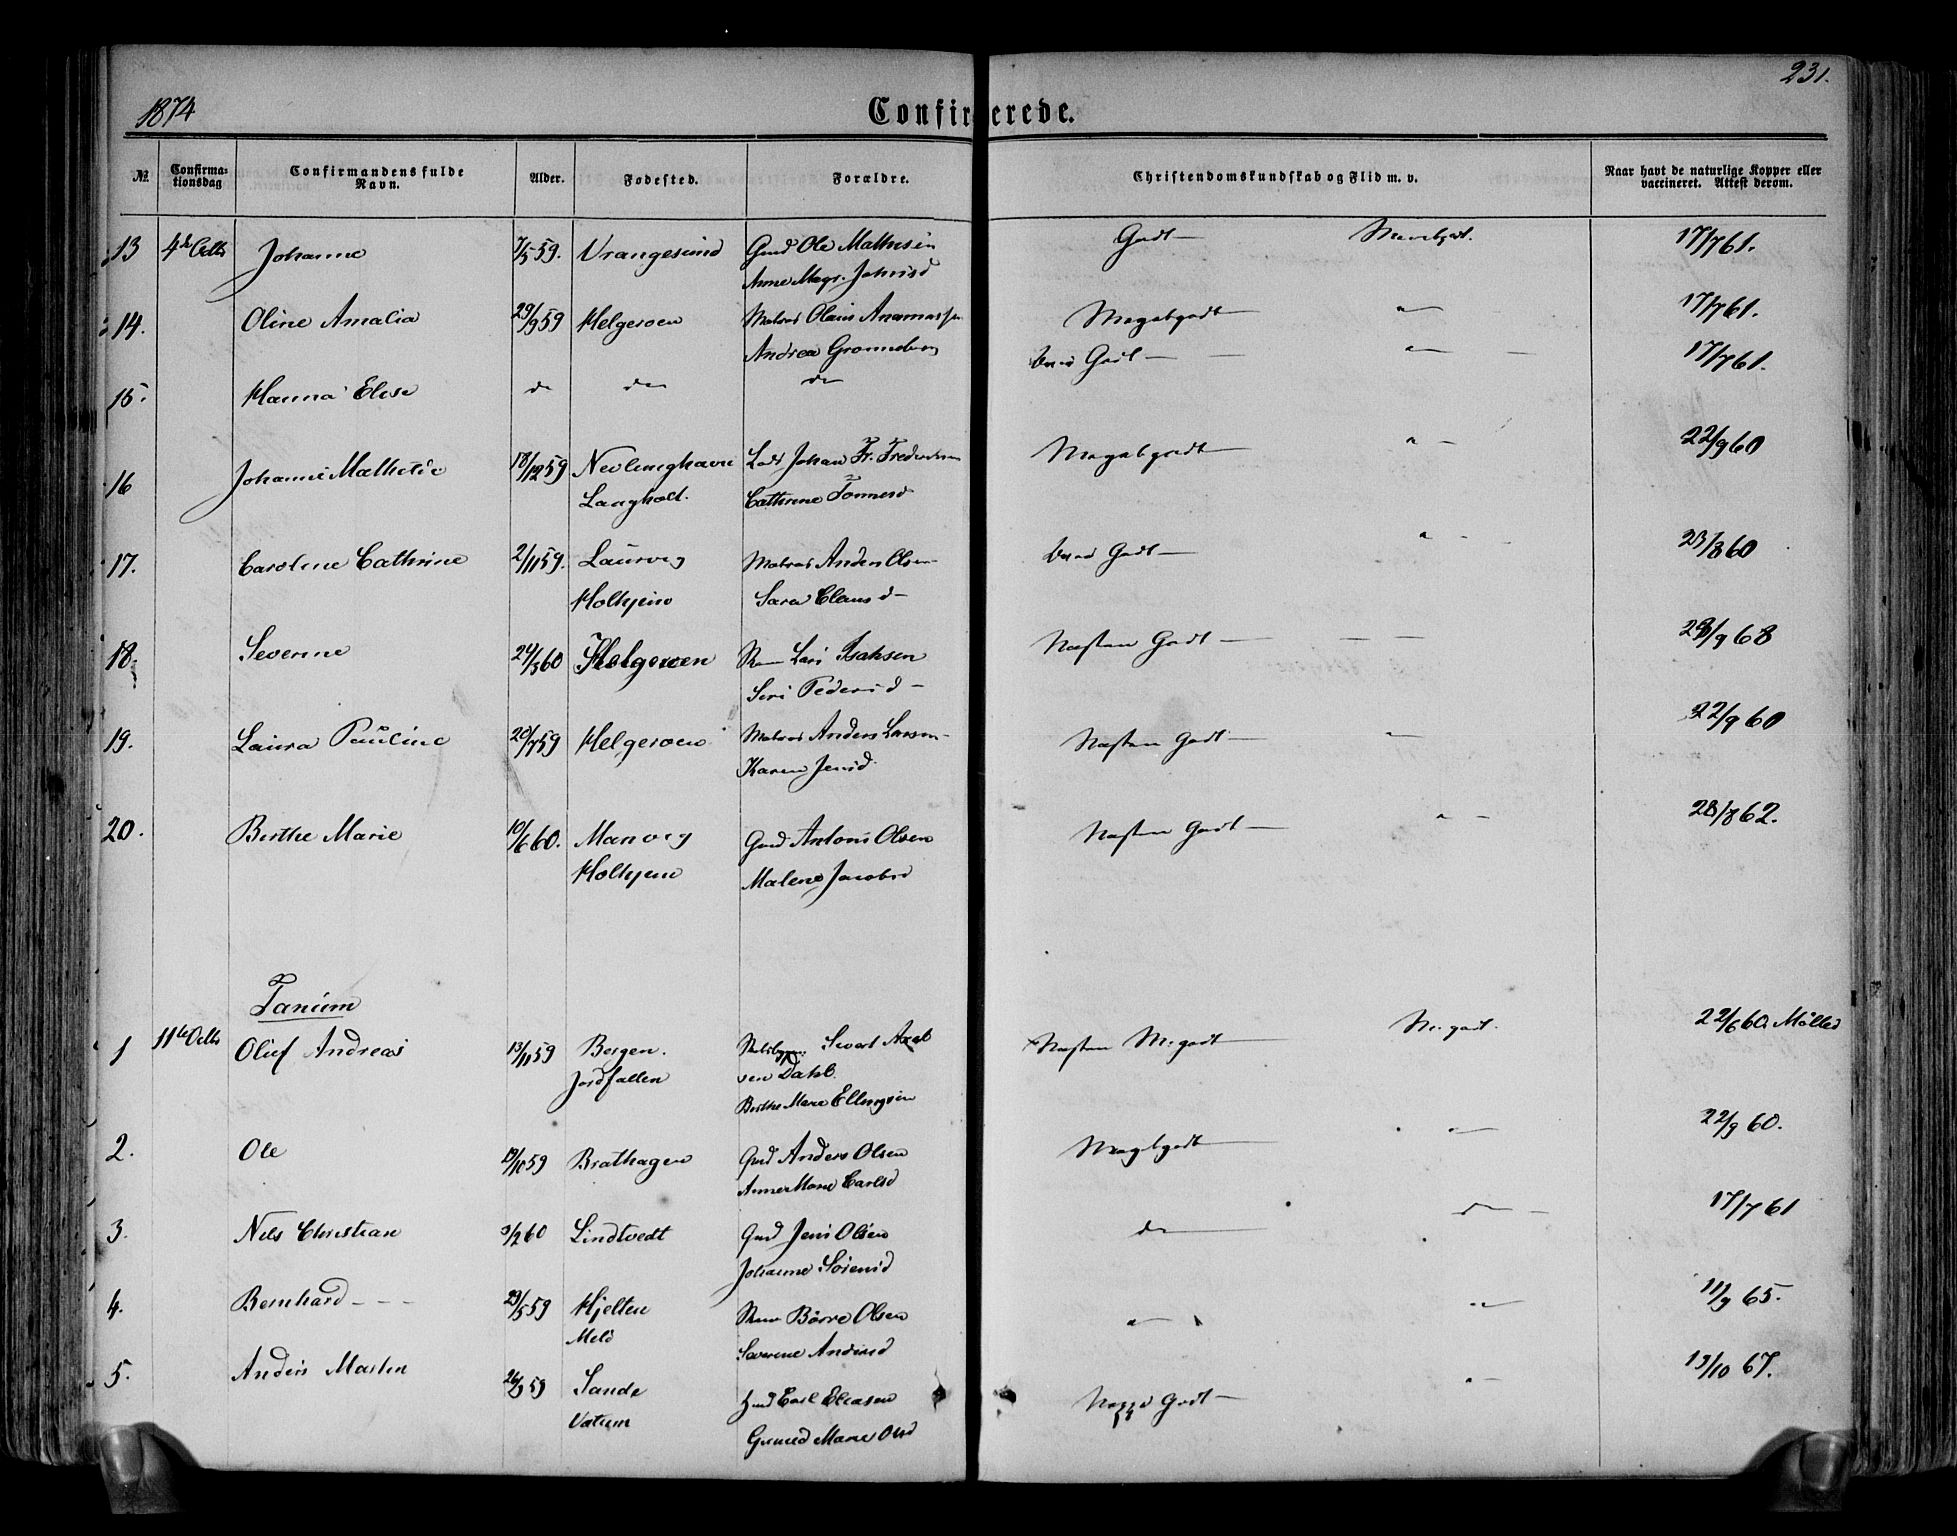 231.
1874
Confirmerede.
№ Confirmationsdag Confirmandens fulde Navn. Alder. Fodested. Forældre. Christendomskundskab og Flid m. v. Naar havt de naturlige Kopper eller vaccineret. Attest derom.
13 4de Octb Johanne 7/5 59. Vrangesund Gmd Ole Mathisen Godt — Meget godt. 17/7 61.
Anne Marg. Johnsd
14. Oline Amalia 29/9 59 Helgeroen Matros Olaus Anamassen Megetgodt — " — 17/7 61.
Andrea Gronneberg
15. Hanna Elise do do do Godt — " — 17/7 61.
16 Johanne Mathilde 18/12 59 Nevlunghavn Johan Fr. Fredriksen Megetgodt — " — 22/9 60
Laaghold. Cathrine Tonnesd
17. Caroline Cathrine 2/11 59. Laurvig Matros Anders Olsen Godt — " — 23/8 60
Holhjem Sara Clausd —
18. Severine 24/5 60 Helgeroen Lars Isaksen Næsten Godt — 9 68
Siri Pedersd —
19. Laura Pauline 20/7 59 Helgeroen Matros Anders Larsen Næsten Godt — " — 22/9 60
Karen Jensd
20. Berthe Marie 10/6 60. Manvig Gmd Antoni Olsen Næsten Godt — " — 28/8 62.
Holhjem Malene Jacobsd
Tanum
1 11te Octb Oluf Andreas 13/11 59 Bergen. Sivert Axel Næsten M. godt — M. godt. 22/6 60 Møller
Jordfallen von Dahl.
Berthe Marie Ellingsen
2. Ole 19/10 59 Brathagen Gmd Anders Olsen Megetgodt — " — 22/9 60.
Anne Marie Carlsd
3. Nils Christian 3/2 60 Lindtvedt Gmd Jens Olsen do — do — 17/7 61
Johanne Sørensd
4. Bernhard - - - 23/5 59 Hjelten Børre Olsen " — " — 11/9 65.
Melø Severine Andersd
5. Anders Martin 26/9 59 Sande Carl Eliasen Godt — " — 19/10 67.
Vatum Gunild Marie Olsd